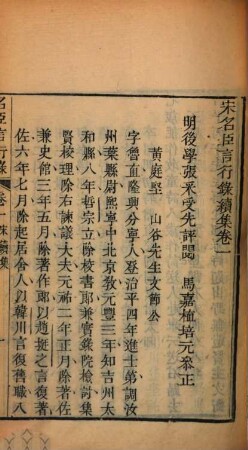 宋名臣言行錄續集卷一
明後學張采受先評閱　馬嘉植培元參正
黃庭堅　山谷先生文節公
字魯直隆興分寧人登治平四年進士第調汝
州葉縣尉熙寧中北京敎元豐三年知吉州太
和縣八年哲宗立除校書郎兼實錄院檢討集
賢校理除右諫議大夫元祐二年正月除著佐
兼史館三年五月除著作郎以趙挺之言復著
佐六年七月除起居舍人以韓川言復舊職八
名臣言行錄　卷一　宋續集　一